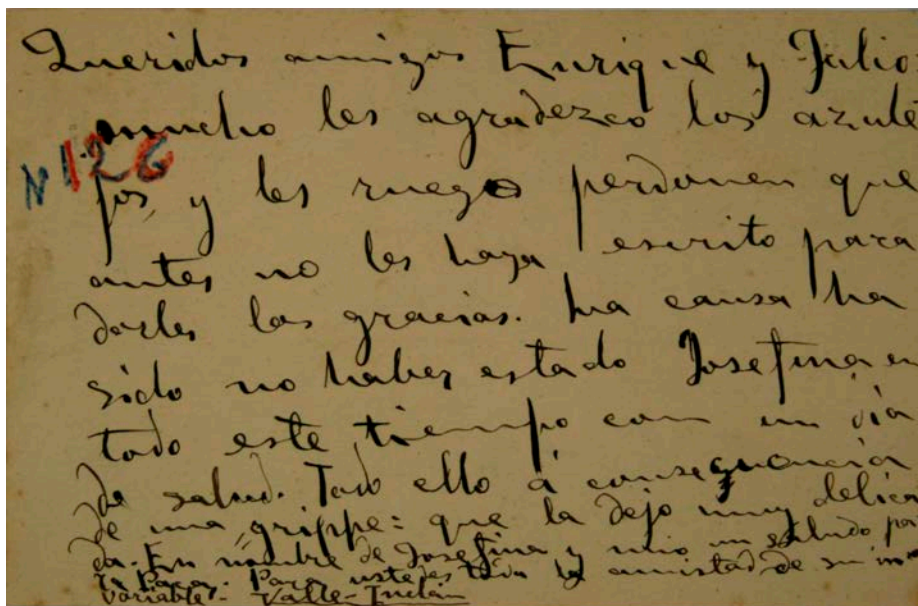 Queridos amigos Enrique y Julio:
mucho les agradezco los azule
jos, y les ruego perdonen que
antes no les haya escrito para
darles las gracias. La causa ha
sido no haber estado Josefina en
todo este tiempo con un día
de salud. Todo ello á consequencia
de una grippe: que la dejo muy delica
da. En nombre de Josefina y mio un saludo para
Paca. Para ustedes toda la amistad de su in
variable - Valle-Inclán
N 126